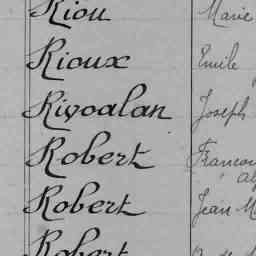 Riou Marie
Rioux Emile
Rivoalan Joseph
Robert
Robert Jean M
Robert